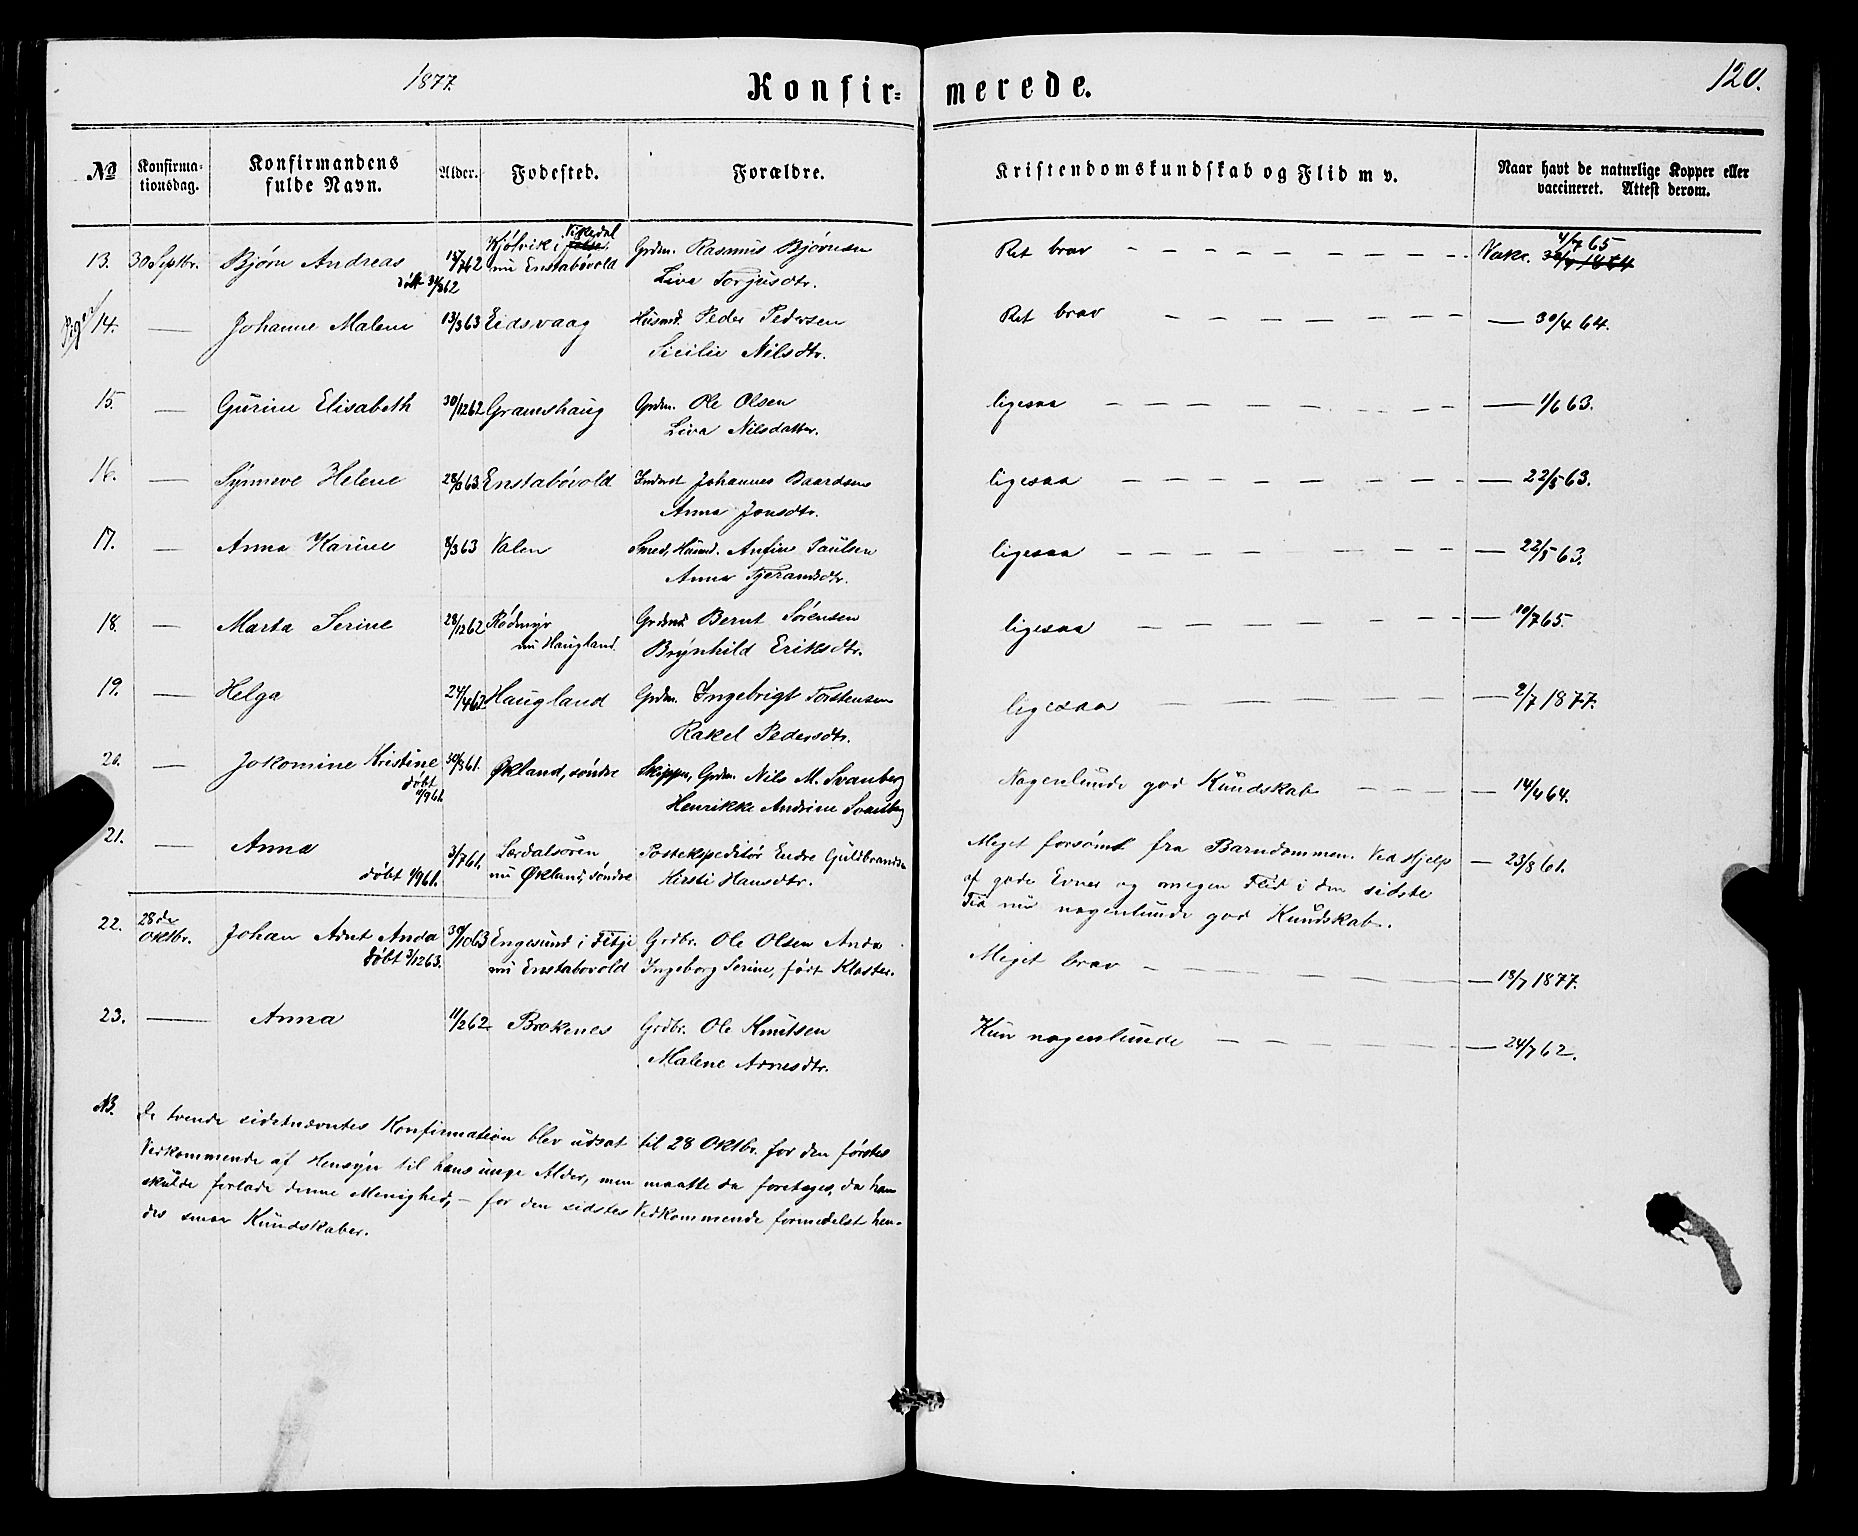 1877.
Konfir=
merede.
120.
No
Konfirma=
tionsdag.
Konfirmandens
fulde Navn.
Alder.
Fødested.
Forældre.
Kristendomskundskab og Flid m v.
Naar havt de naturlige Kopper eller
vaccineret. Attest derom.
13. 30 Septbr. Bjørn Andreas 15/7 62 Kjølvik i Vikedal Grdm. Rasmus Bjørnsen Ret brav — Vakc. 4/7 65
døbt 31/8 62 nu Enstabövold Liva Torjusdtr.
Piger
14. — Johanne Malene 13/3 63 Eidsvaag Husmd. Peder Pedersen Ret brav — — 30/4 64.
Sicilie Nilsdtr.
15. — Gurine Elisabeth 30/12 62 Gramshaug Grdm. Ole Olsen ligesaa — — 1/6 63.
Liva Nilsdatter.
16. — Synneve Helene 28/1 63. Enstabövold Inderst Johannes Baardsen ligesaa — — 22/5 63.
Anna Jonsdtr.
17. — Anna Karine 8/3 63 Valen Smed, Husmd. Anfin Paulsen ligesaa — — 22/5 63.
Anna Tjerandsdtr.
18. — Marta Serine 28/12 62 Rødmyr Grdmd. Bernt Sörensen ligesaa — — 10/7 65.
nu Haugland. Brynhild Eriksdtr.
19. — Helga 24/4 62 Haugland Grdm. Ingebrigt Torstensen ligesaa — — 2/7 1877.
Rakel Pedersdtr.
20. — Jokomine Kristine 30/8 61. Økland, söndre Skipper, Grdm. Nils M. Svanberg Nogenlunde god Kundskab — — 14/4 64.
døbt
1/9 61. Henrikke Andrine Svanberg
21. — Anna 3/7 61. Lærdalsören Postekspeditør Endre Guldbrandsen Meget forsömt fra Barndommen. Ved Hjelp — 23/8 61.
døbt 1/9 61. nu Økland, söndre Kirsti Hansdtr. af gode Evner og megen Flid i den sidste
Tid nu nogenlunde god Kundskab.
22. 28de
Oktbr. Johan Arnt Anda 30/10 63 Engesund i Fitje Grdbr. Ole Olsen Anda Meget brav — — 18/7 1877.
Døbt 3/12 63. nu Enstabovold Ingeborg Serine, født Kloster.
23. — Anna 11/2 62 Brakenes Grdbr. Ole Knutsen Kun nogenlunde — — 24/7 62.
Malene Arnesdtr.
NB. De tvende sidstnævntes Konfirmation blev udsat til 28 Oktbr. for den förstes
Vedkommende af Hensyn til hans unge Alder, men maatte da foretages, da han
skulde forlade denne Menighed, — for den sidstes Vedkommende formedelst hen=
des smaa Kundskaber.